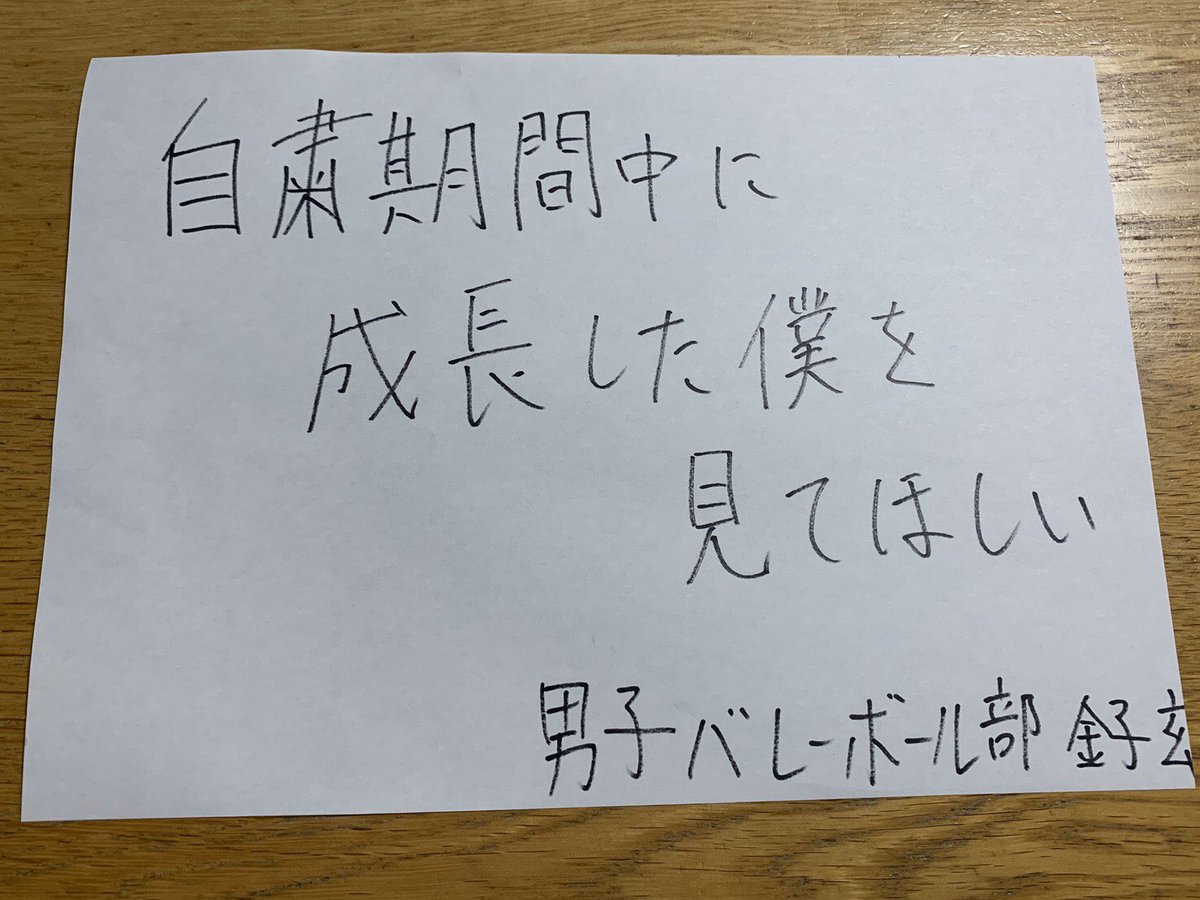 自粛期間中に
成長した僕を
見てほしい
男子バレーボール部 金子玄